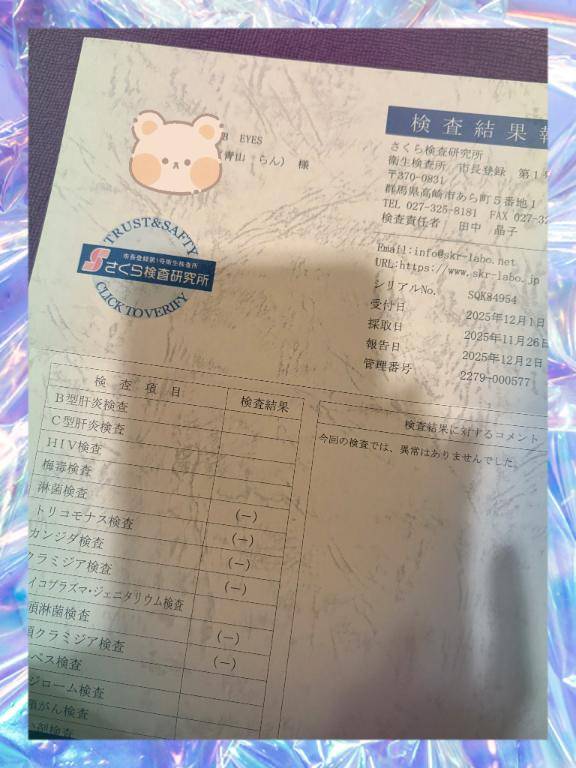 B EYES
(青山 らん) 様
検査結果報
さくら検査研究所
衛生検査所 市長登録 第1
〒370-0831
群馬県高崎市あら町5番地1
TEL 027-325-8181 FAX 027-32
検査責任者 田中 晶子
Email:info@skr-labo.net
URL:https://www.skr-labo.jp
シリアルNo. SQK84954
受付日 2025年12月1日
採取日 2025年11月26日
報告日 2025年12月2日
管理番号 2279-000577
TRUST&SAFTY
市長登録第1号衛生検査所
さくら検査研究所
CLICK TO VERIFY
検査項目 検査結果
B型肝炎検査
C型肝炎検査
HIV検査
梅毒検査
淋菌検査 (-)
トリコモナス検査 (-)
カンジダ検査 (-)
クラミジア検査 (-)
イコプラズマ・ジェニタリウム検査
頭淋菌検査 (-)
頭クラミジア検査 (-)
ペス検査
ジローム検査
頸がん検査
検査結果に対するコメント
今回の検査では、異常はありませんでした。